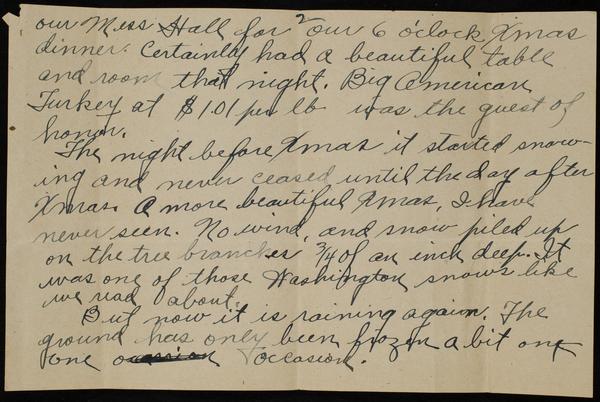 2
our Mess Hall for our 6 o'clock Xmas
dinner. Certainly had a beautiful table
and room that night. Big American
Turkey at $1.01 per lb was the guest of
honor.
The night before Xmas it started snow-
ing and never ceased until the day after
Xmas. A more beautiful Xmas, I have
never seen. No wind, and snow piled up
on the tree branches 3/4 of an inch deep. It
was one of those Washington snows like
we read about.
But now it is raining again. The
ground has only been frozen a bit on
one occasion.